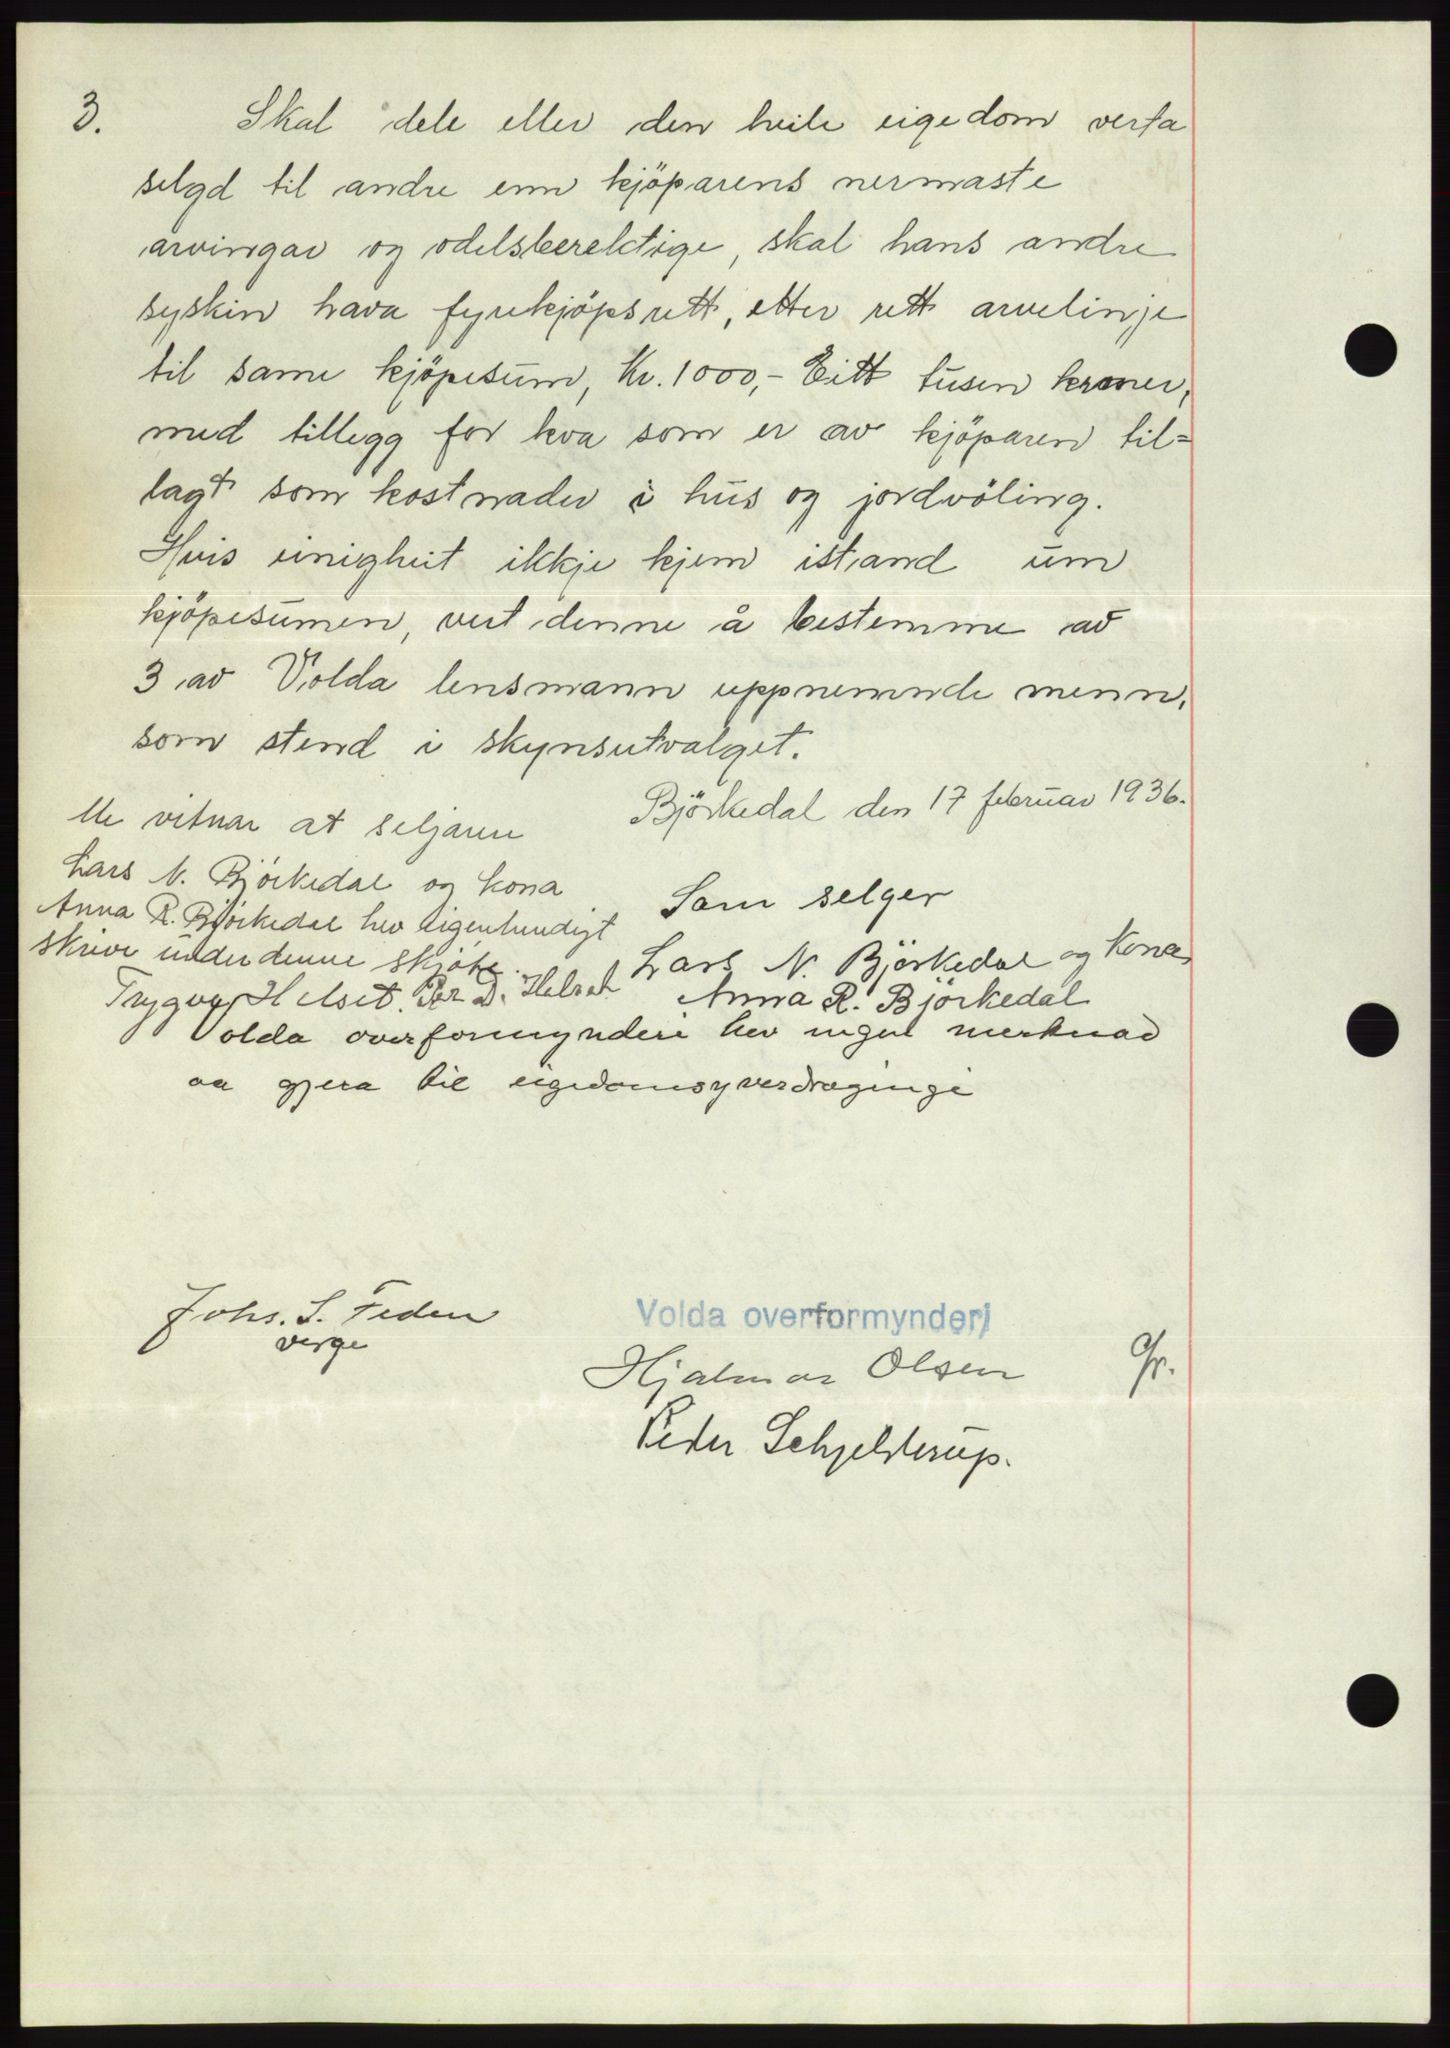 3. Skal dele eller den heile eigedom verta
selgd til andre enn kjöparens nermaste
arvingar og odelsberektige, skal hans andre
syskin hava fyrekjöpsrett, etter rett arvelinje
til same kjöpesum, Kr. 1000,- Eitt tusen kroner,
med tillegg for kva som er av kjöparen til=
lagt som kostnader i hus og jordvöling.
Hvis einigheit ikkje kjem istand um
kjöpesumen, vert denne å bestemme av
3 av Volda lensmann uppnemnde menn,
som stend i skynsutvalget.
Björkedal den 17 februar 1936.
Me vitnar at seljaren
Lars N. Björkedal og kona
Anna R. Björkedal hev eigenhendigt
skrive under denne skjöte.
Trygve Helset. Per D. Helset
Som selger
Lars N. Björkedal og Kona
Anna R. Björkedal
Volda overformynderi hev ingen merknad
aa gjera til eigedomsyverdragingi
Johs. S. Feden
verge
Volda overformynderi
Hjalmar Olsen
Gr.
Peder Schjelderup.